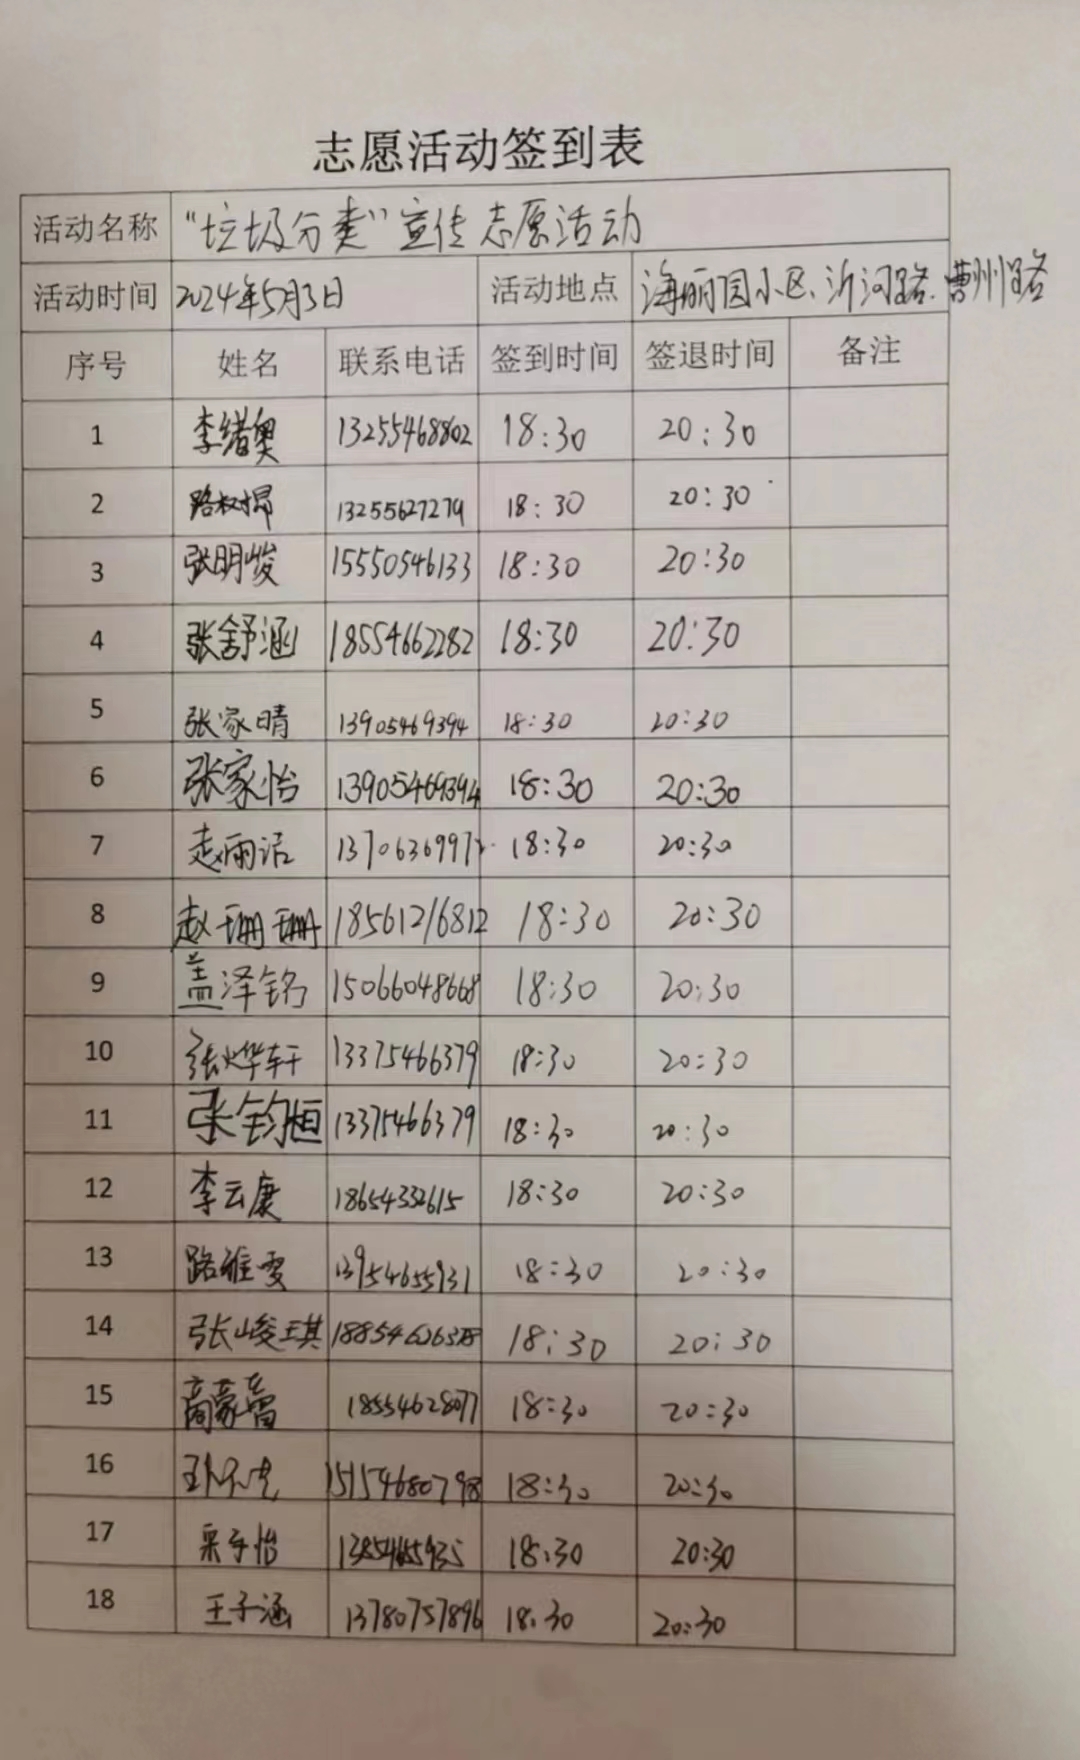 志愿活动签到表
活动名称 “垃圾分类”宣传志愿活动
活动时间 2024年5月3日 活动地点 海丽园小区、沂河路、曹州路
序号 姓名 联系电话 签到时间 签退时间 备注
1 李绪奥 13255468802 18:30 20:30
2 13255627279 18:30 20:30
3 张明峻 15550546133 18:30 20:30
4 张舒涵 18554662282 18:30 20:30
5 张家晴 13905469394 18:30 20:30
6 张家怡 13905469394 18:30 20:30
7 赵雨洁 18:30 20:30
8 赵珊珊 18561216812 18:30 20:30
9 盖泽铭 15066048668 18:30 20:30
10 张烨轩 13375466379 18:30 20:30
11 张钧恒 13375466379 18:30 20:30
12 李云康 18654332615 18:30 20:30
13 路雅雯 13954655931 18:30 20:30
14 张峻琪 18:30 20:30
15 18554628077 18:30 20:30
16 15154680798 18:30 20:30
17 18:30 20:30
18 王子涵 13780757896 18:30 20:30